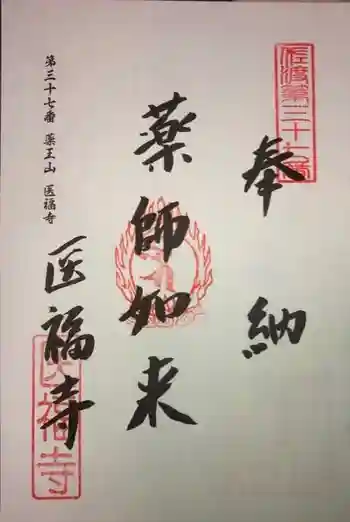 佐渡第三十七番
奉納
薬師如来
医福寺
第三十七番 薬王山 医福寺
医福寺